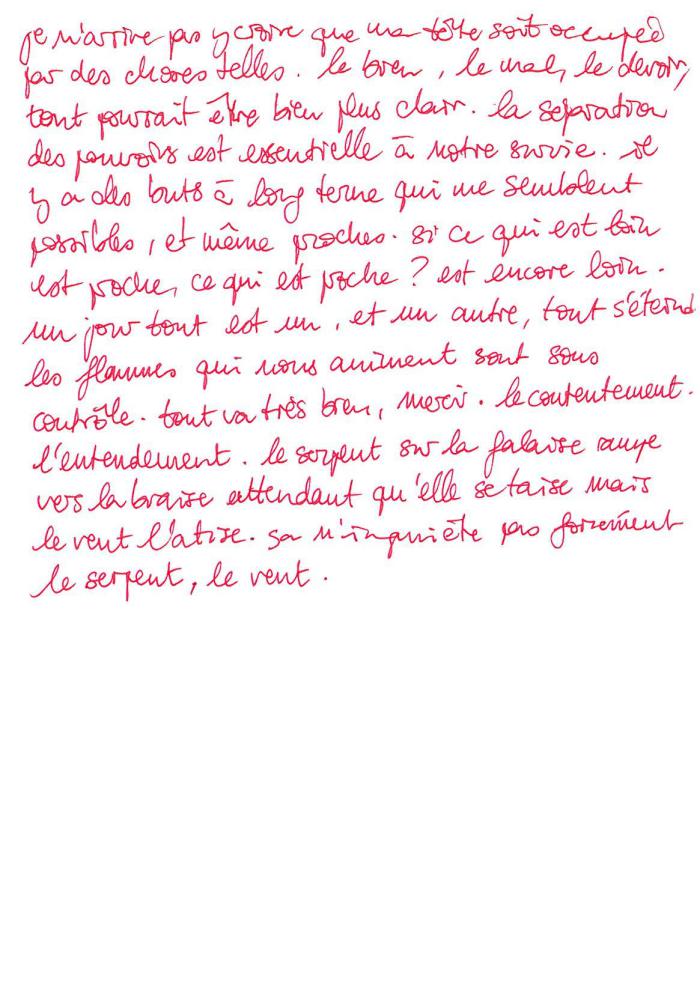 je n'arrive pas y croire que ma tête soit occupée
par des choses telles. le bien, le mal, le devoir,
tout pourrait être bien plus clair. la separation
des pouvoirs est essentielle à notre survie. il
y a des buts à long terme qui me semblent
possibles, et même proches. si ce qui est loin
est proche, ce qui est poche? est encore loin.
un jour tout est un, et un autre, tout s'éteind
les flammes qui nous animent sont sous
contrôle. tout va très bien, merci. le contentement.
l'entendement. le serpent sur la falaise
vers la braise attendant qu'elle se taise mais
le vent l'atise. sa n'inquiète pas forcément
le serpent, le vent.